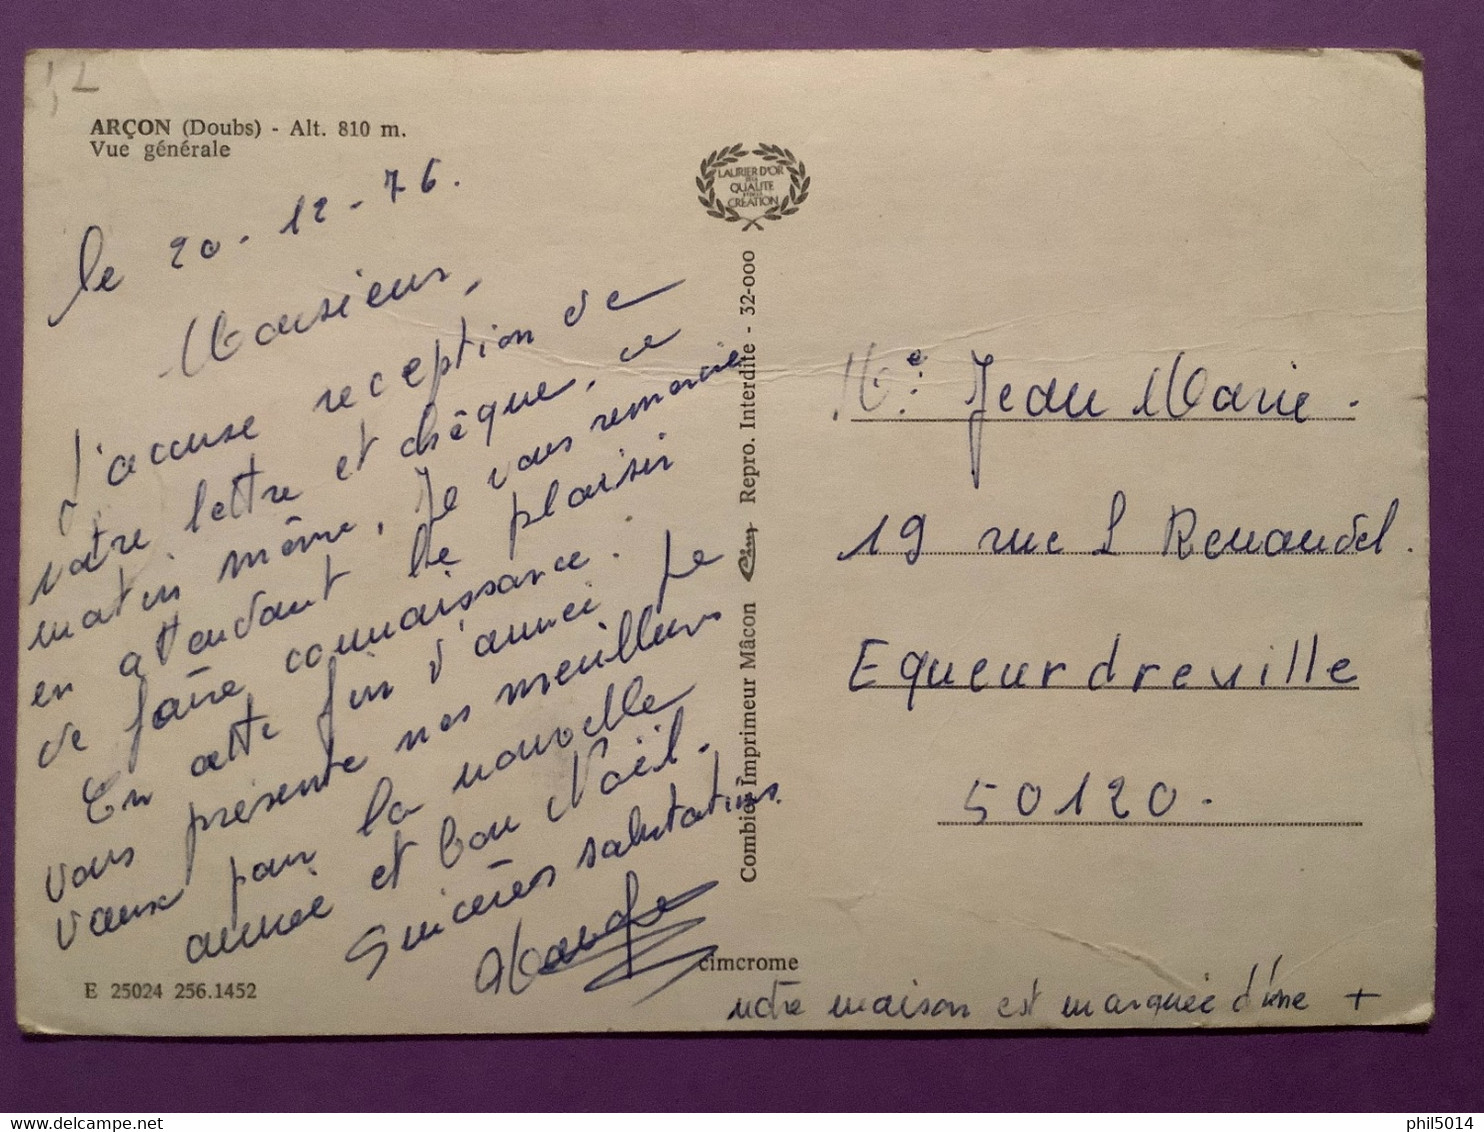 ARÇON (Doubs) - Alt. 810 m.
Vue générale
le 20-12-76.
Monsieur,
J'accuse reception de
votre lettre et chèque, ce
matin même, Je vous remercie
en attendant le plaisir
de faire connaissance.
En cette fin d'année je
vous présente nos meilleurs
vœux pour la nouvelle
année et bon Noël.
Sincères salutations
E 25024 256.1452
LAURIER D'OR
DE LA
QUALITE
CREATION
Combier Imprimeur Mâcon Cim Repro. Interdite - 32-000
cimcrome
Mr: Jean Marie.
19 rue L Renaudel.
Equeurdreville
50120.
notre maison est marquée d'une +
delcampe.net
phil5014